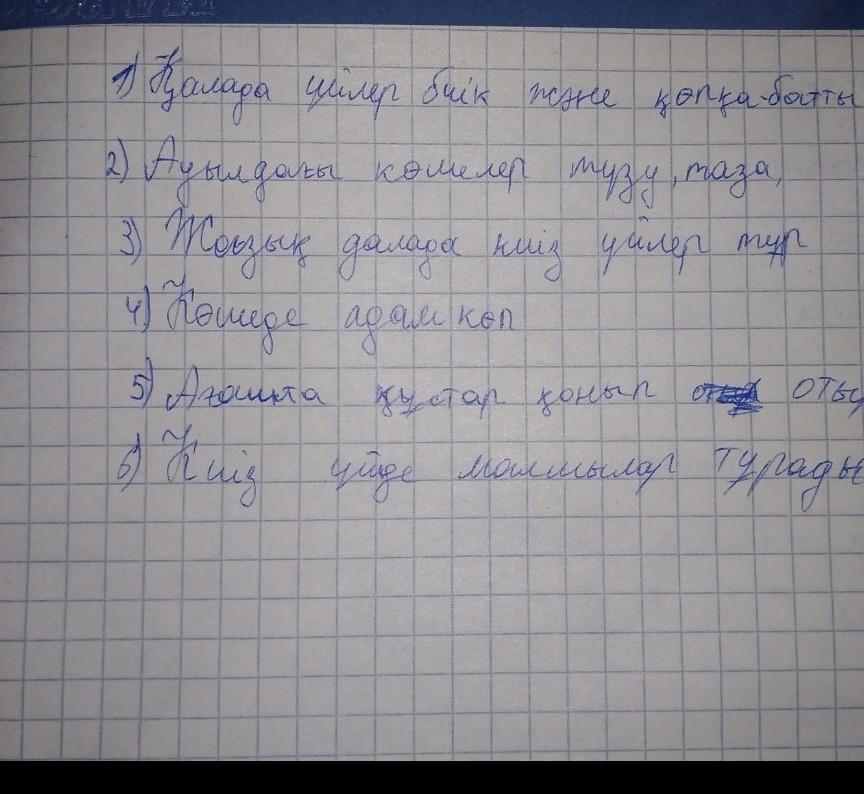 1) Қалада үйлер биік және қөпқа-батты
2) Ауылдағы көшелер түзу, таза,
3) Жазық далада киіз үйлер тұр
4) Көшеде адам көп
5) Ағашта құстар қонып оты
6) Киіз үйде малшылар тұрады